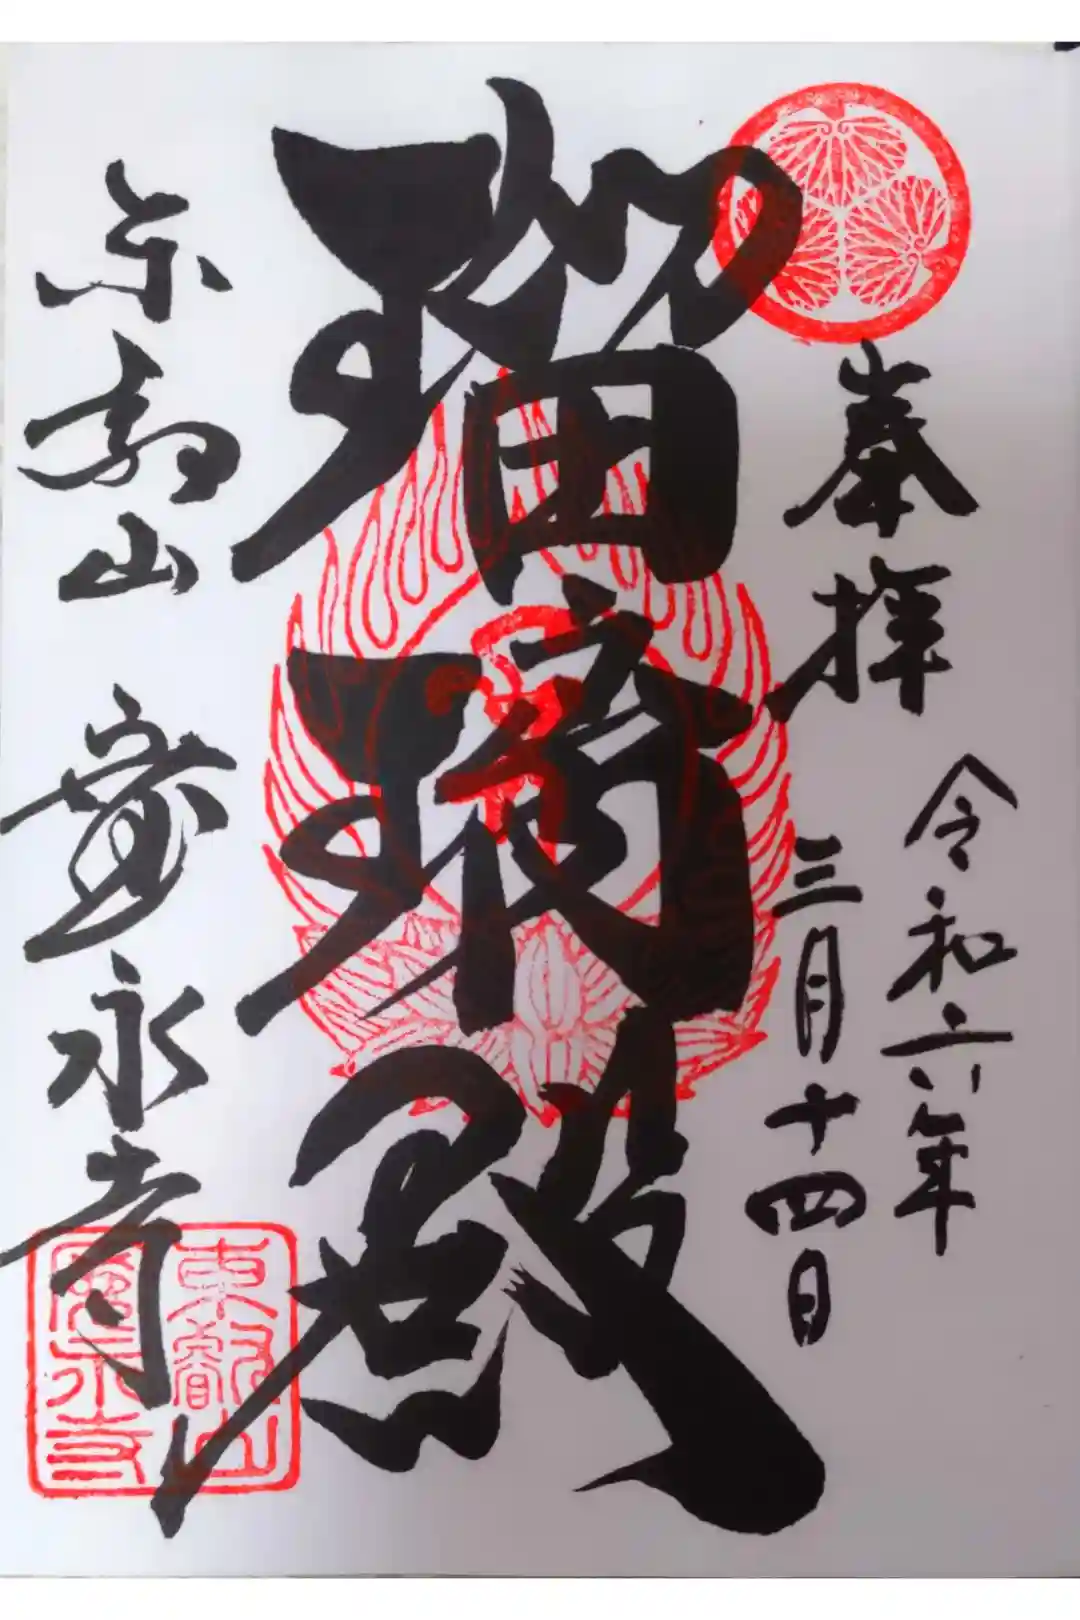 奉拝
令和六年
三月十四日
瑠璃殿
東叡山 寛永寺
東叡山
寛永寺